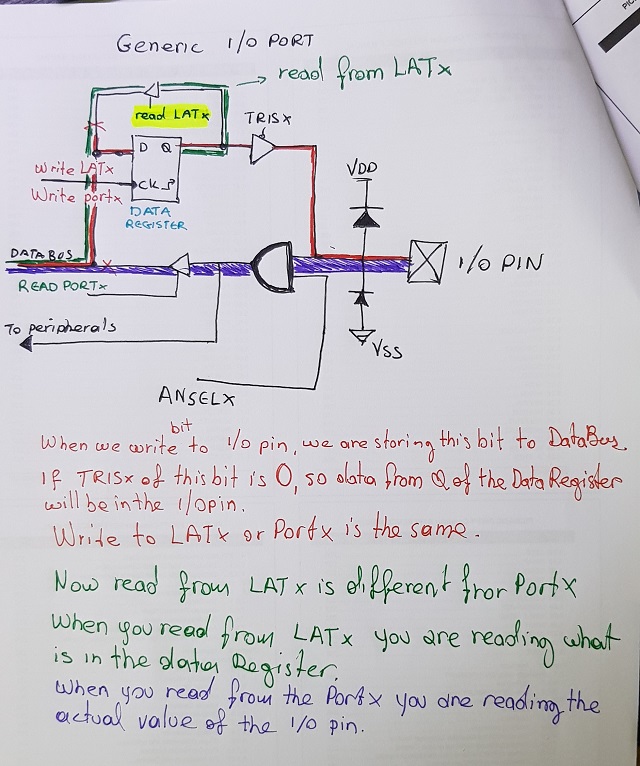 Generic I/O PORT
read from LATx
read LATx
TRISX
D Q
Write LATx
Write portx
CK
DATA
REGISTER
VDD
DATA BUS
READ PORTx
I/O PIN
To peripherals
VSS
ANSELX
bit
When we write to I/O pin, we are storing this bit to DataBus
If TRISx of this bit is 0, so data from Q of the Data Register
will be in the I/O pin.
Write to LATx or Portx is the same.
Now read from LATx is different fror PortX
When you read from LATx you are reading what
is in the data Register.
When you read from the Portx you are reading the
actual value of the I/O pin.